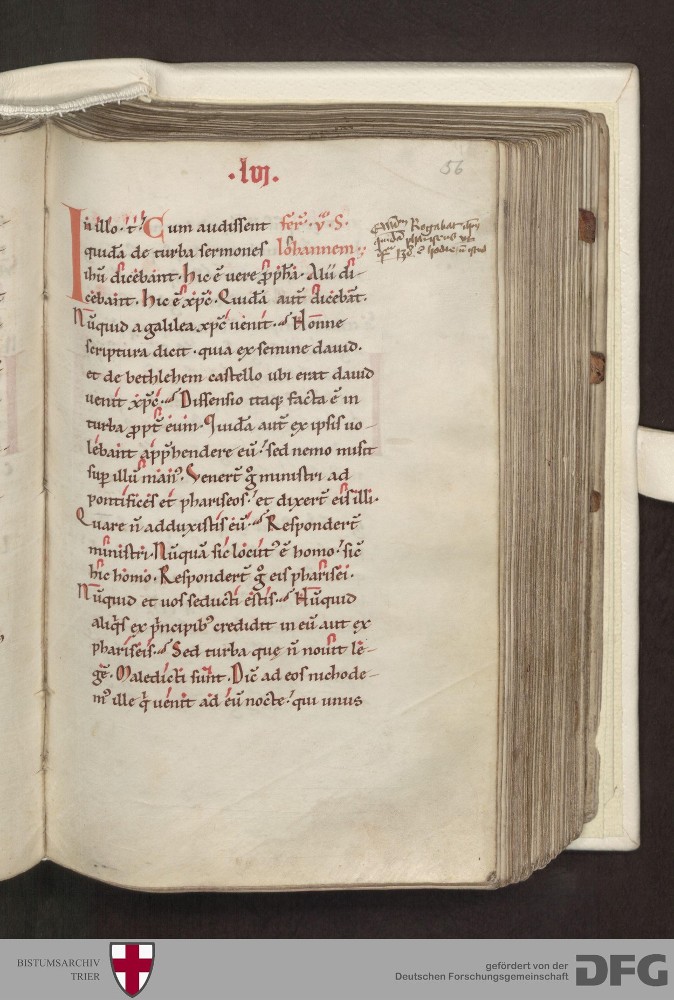 ·lvj·
56
In illo·t̄· Cum audissent fer̄·v·S·
quidā de turba sermones Iohannem·
ihū dicebant· hic ē vere ppħa· Alii di-
cebant· hic ē xp̄c· Quidā aut̄ dicebant̄·
Nūquid a galilea xp̄c uenit· Nonne
scriptura dicit· quia ex semine dauid·
et de bethlehem castello ubi erat dauid
uenit xp̄c· Dissensio itaq; facta ē in
turba ppt̄ eum· Quidā aut̄ ex ipsis uo-
lebant app̄hendere eū· sed nemo misit
sup illū man᷒· Venert̄ g̊ ministri ad
pontifices et phariseos· et dixert̄ eis illi·
Quare n̄ adduxistis eū· Respondert̄
ministri· Nūquā sic locut᷒ ē homo· sic̄
hic homo· Respondert̄ g̊ eis pharisei·
Nūquid et uos seducti estis· Nūquid
aliq̄s ex p̄ncipib᷒ credidit in eū aut ex
phariseis· Sed turba que n̄ nouit le-
gē· Maledicti sunt· Dic̄ ad eos nichode-
m᷒ ille q̄ uenit ad eū nocte· qui unus
Rogabat
BISTUMSARCHIV
TRIER
gefördert von der
Deutschen Forschungsgemeinschaft
DFG